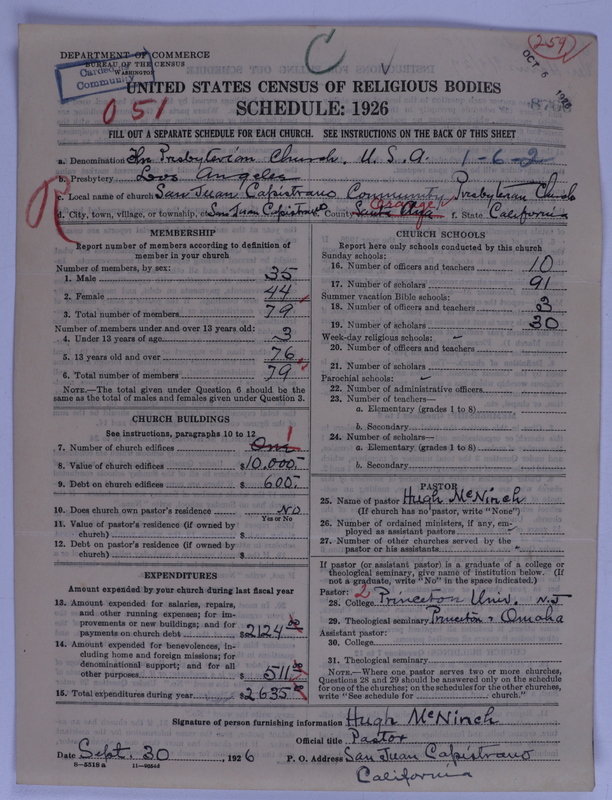 DEPARTMENT OF COMMERCE
BUREAU OF THE CENSUS
WASHINGTON
Community
C
259
OCT 6
051
UNITED STATES CENSUS OF RELIGIOUS BODIES
SCHEDULE: 1926
FILL OUT A SEPARATE SCHEDULE FOR EACH CHURCH. SEE INSTRUCTIONS ON THE BACK OF THIS SHEET
a. Denomination The Presbyterian Church. U.S.A. 1-6-2
b. Presbytery Los Angeles
c. Local name of church San Juan Capistrano Community Presbyterian Church
d. City, town, village, or township, etc. San Juan Capistrano County Santa Ana Orange f. State California
R
MEMBERSHIP
Report number of members according to definition of
member in your church
Number of members, by sex:
1. Male 35
2. Female 44
3. Total number of members 79
Number of members under and over 13 years old:
4. Under 13 years of age 3
5. 13 years old and over 76
6. Total number of members 79
NOTE.—The total given under Question 6 should be
the same as the total of males and females given under Question 3.
CHURCH BUILDINGS
See instructions, paragraphs 10 to 12
7. Number of church edifices One 1
8. Value of church edifices $10,000.-
9. Debt on church edifices $ 600.-
10. Does church own pastor's residence NO
Yes or No
11. Value of pastor's residence (if owned by
church) $
12. Debt on pastor's residence (if owned by
church) $
EXPENDITURES
Amount expended by your church during last fiscal year
13. Amount expended for salaries, repairs,
and other running expenses; for im-
provements or new buildings; and for
payments on church debt $2124.00
14. Amount expended for benevolences, in-
cluding home and foreign missions; for
denominational support; and for all
other purposes $ 511.00
15. Total expenditures during year $2635.00
CHURCH SCHOOLS
Report here only schools conducted by this church
Sunday schools:
16. Number of officers and teachers 10
17. Number of scholars 91
Summer vacation Bible schools:
18. Number of officers and teachers 3
19. Number of scholars 30
Week-day religious schools: -
20. Number of officers and teachers
21. Number of scholars
Parochial schools: -
22. Number of administrative officers
23. Number of teachers—
a. Elementary (grades 1 to 8)
b. Secondary
24. Number of scholars—
a. Elementary (grades 1 to 8)
b. Secondary
PASTOR
25. Name of pastor Hugh McNinch
(If church has no pastor, write "None")
26. Number of ordained ministers, if any, em-
ployed as assistant pastors
27. Number of other churches served by the
pastor or his assistants -
If pastor (or assistant pastor) is a graduate of a college or
theological seminary, give name of institution below. (If
not a graduate, write "No" in the space indicated.)
Pastor: 2
28. College Princeton Univ. N.J
29. Theological seminary Princeton & Omaha
Assistant pastor:
30. College
31. Theological seminary
NOTE.—Where one pastor serves two or more churches,
Questions 28 and 29 should be answered only on the schedule
for one of the churches; on the schedules for the other churches,
write "See schedule for church."
Signature of person furnishing information Hugh McNinch
Official title Pastor
Date Sept. 30, 1926 P. O. Address San Juan Capistrano
California
8—5318 a